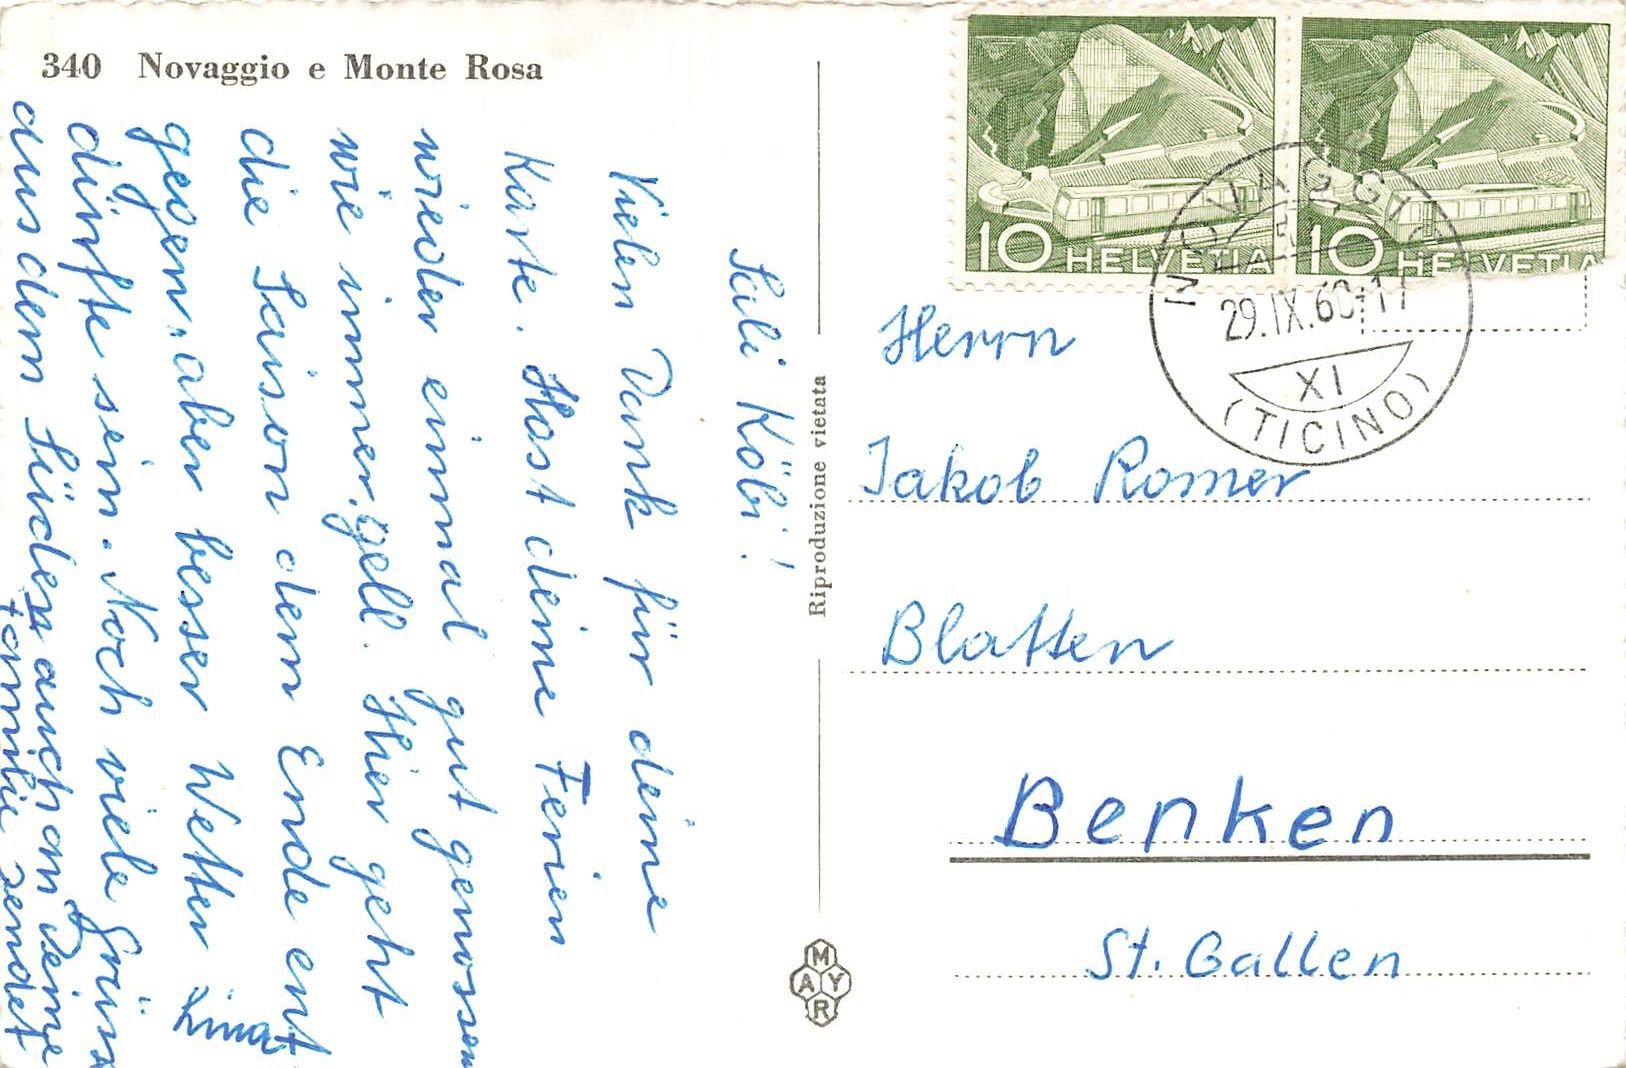 340 Novaggio e Monte Rosa
Sali Köbi!
Vielen Dank für deine
Karte. Hast deine Ferien
wieder einmal gut genossen
wie immer, gell. Hier geht
die Saison dem Ende ent
gegen, aber besser Wetter
dürfte sein. Noch viele Grüsse
aus dem Süden auch an Deine
Familie sendet
Riproduzione vietata
MAYR
10 HELVETIA
10 HELVETIA
NOVAGGIO
29.IX.60-11
XI
(TICINO)
Herrn
Jakob Romer
Blatten
Benken
St. Gallen